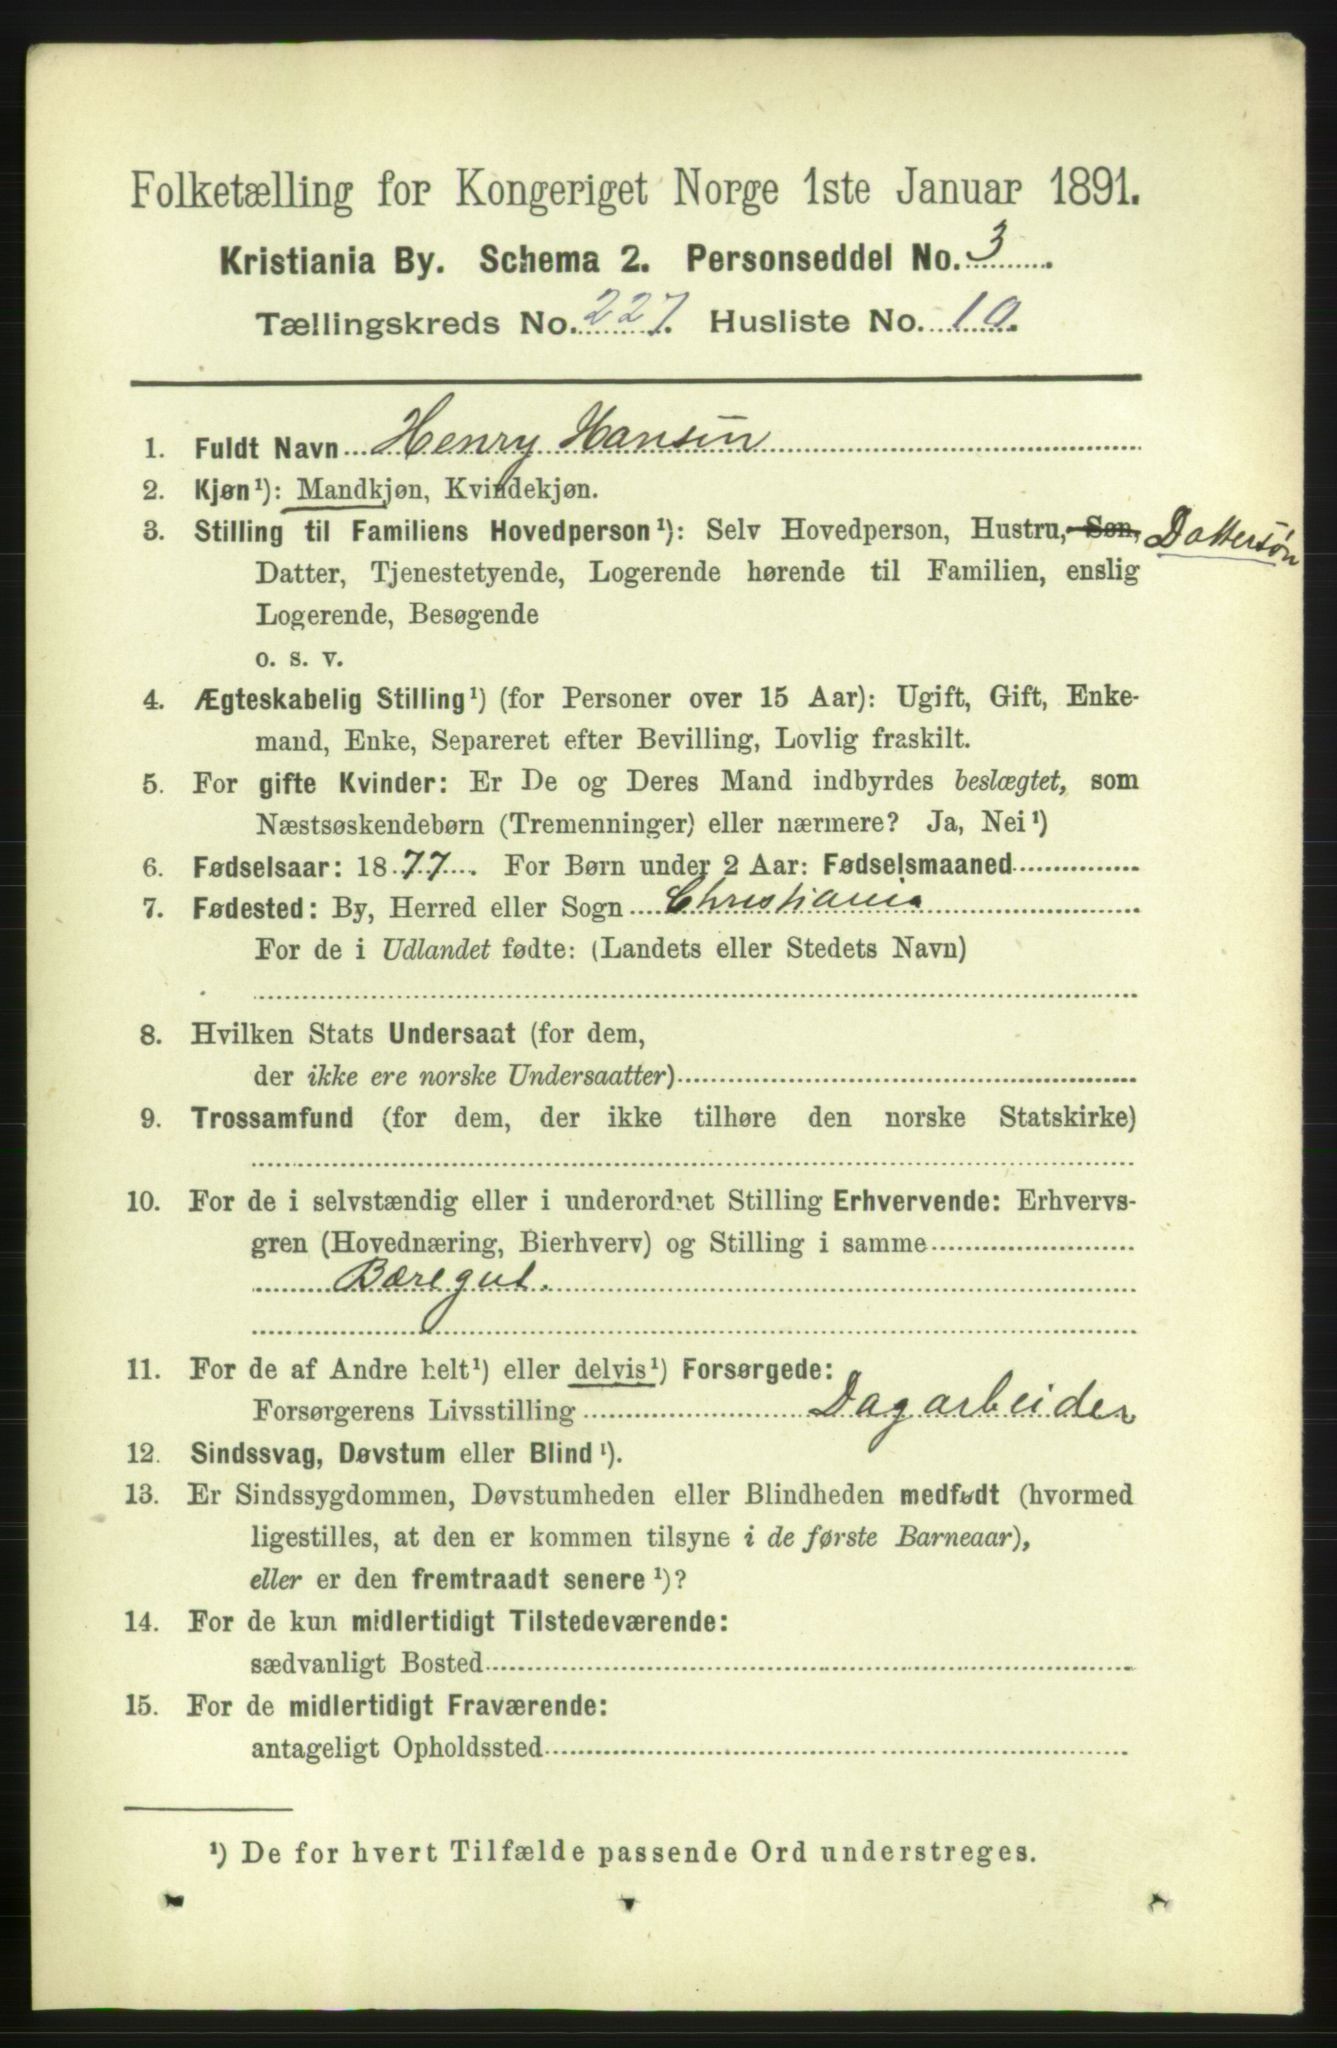 Folketælling for Kongeriget Norge 1ste Januar 1891.
Kristiania By. Schema 2. Personseddel No. 3
Tællingskreds No. 227. Husliste No. 10.
1. Fuldt Navn Henry Hansen
2. Kjøn¹): Mandkjøn, Kvindekjøn.
3. Stilling til Familiens Hovedperson¹): Selv Hovedperson, Hustru, Søn, Dattersøn
Datter, Tjenestetyende, Logerende hørende til Familien, enslig
Logerende, Besøgende
o. s. v.
4. Ægteskabelig Stilling¹) (for Personer over 15 Aar): Ugift, Gift, Enke-
mand, Enke, Separeret efter Bevilling, Lovlig fraskilt.
5. For gifte Kvinder: Er De og Deres Mand indbyrdes beslægtet, som
Næstsøskendebørn (Tremenninger) eller nærmere? Ja, Nei¹)
6. Fødselsaar: 1877. For Børn under 2 Aar: Fødselsmaaned
7. Fødested: By, Herred eller Sogn Christiania
For de i Udlandet fødte: (Landets eller Stedets Navn)
8. Hvilken Stats Undersaat (for dem,
der ikke ere norske Undersaatter)
9. Trossamfund (for dem, der ikke tilhøre den norske Statskirke)
10. For de i selvstændig eller i underordnet Stilling Erhvervende: Erhvervs-
gren (Hovednæring, Bierhverv) og Stilling i samme
Bæregut.
11. For de af Andre helt¹) eller delvis¹) Forsørgede:
Forsørgerens Livsstilling Dagarbeider
12. Sindssvag, Døvstum eller Blind¹).
13. Er Sindssygdommen, Døvstumheden eller Blindheden medfødt (hvormed
ligestilles, at den er kommen tilsyne i de første Barneaar),
eller er den fremtraadt senere¹)?
14. For de kun midlertidigt Tilstedeværende:
sædvanligt Bosted
15. For de midlertidigt Fraværende:
antageligt Opholdssted
¹) De for hvert Tilfælde passende Ord understreges.